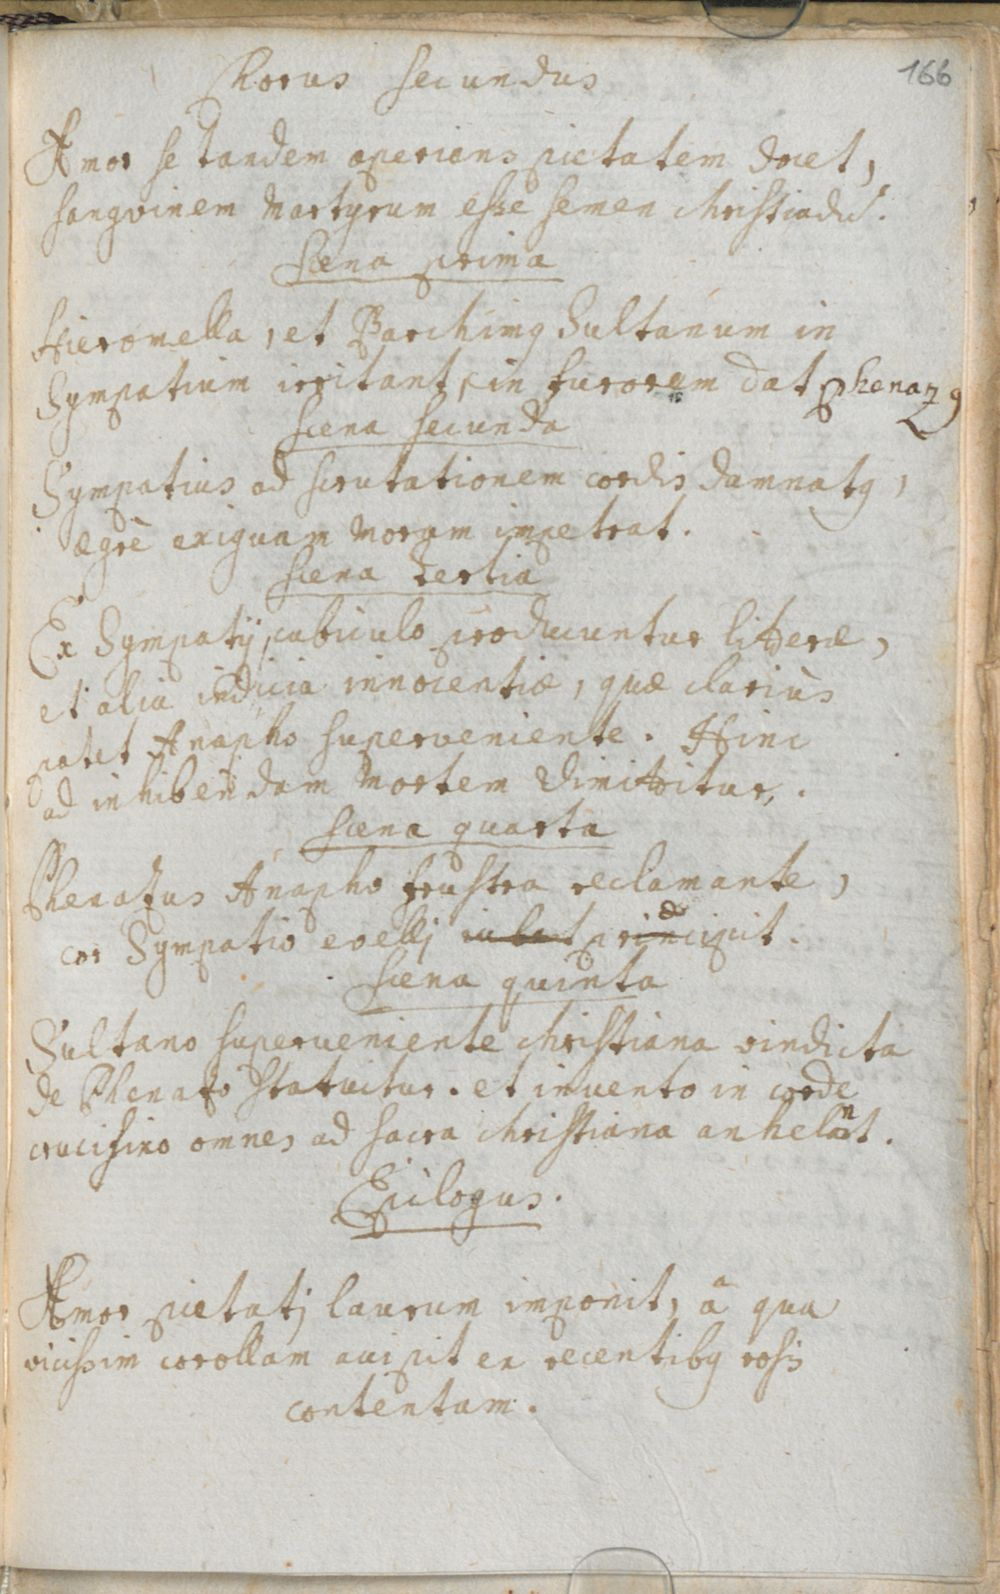 Chorus secundus
166
Amor se tandem aperiens pietatem docet,
sangvinem Martyrum esse semen Christiadũ.
Scena prima
Hieromella, et Barchimꝯ Sultanum in
Sympatium irritant, in furorem dat Phenazꝯ
scena secunda
Sympatius ad scrutationem cordis damnatꝯ,
ægrè exiguam moram impetrat.
scena tertia
Ex Sympatij cubiculo producuntur litteræ,
et alia indicia innocentiæ, quæ clariùs
patet Anapho superveniente. Hinc
ad inhibendam mortem dimittitur.
scena quarta
Phenazus Anapho frustra reclamante,
cor Sympatio evelli iubet principit.
scena quinta
Sultano superueniente Christiana vindicta
de Phenazo statuitur. et inuento in corde
crucifixo omnes ad sacra Christiana anhelant.
Epilogus.
Amor pietatj laurum imponit, â qua
vicissim corollam accipit ex recentibꝯ rosis
contentam.